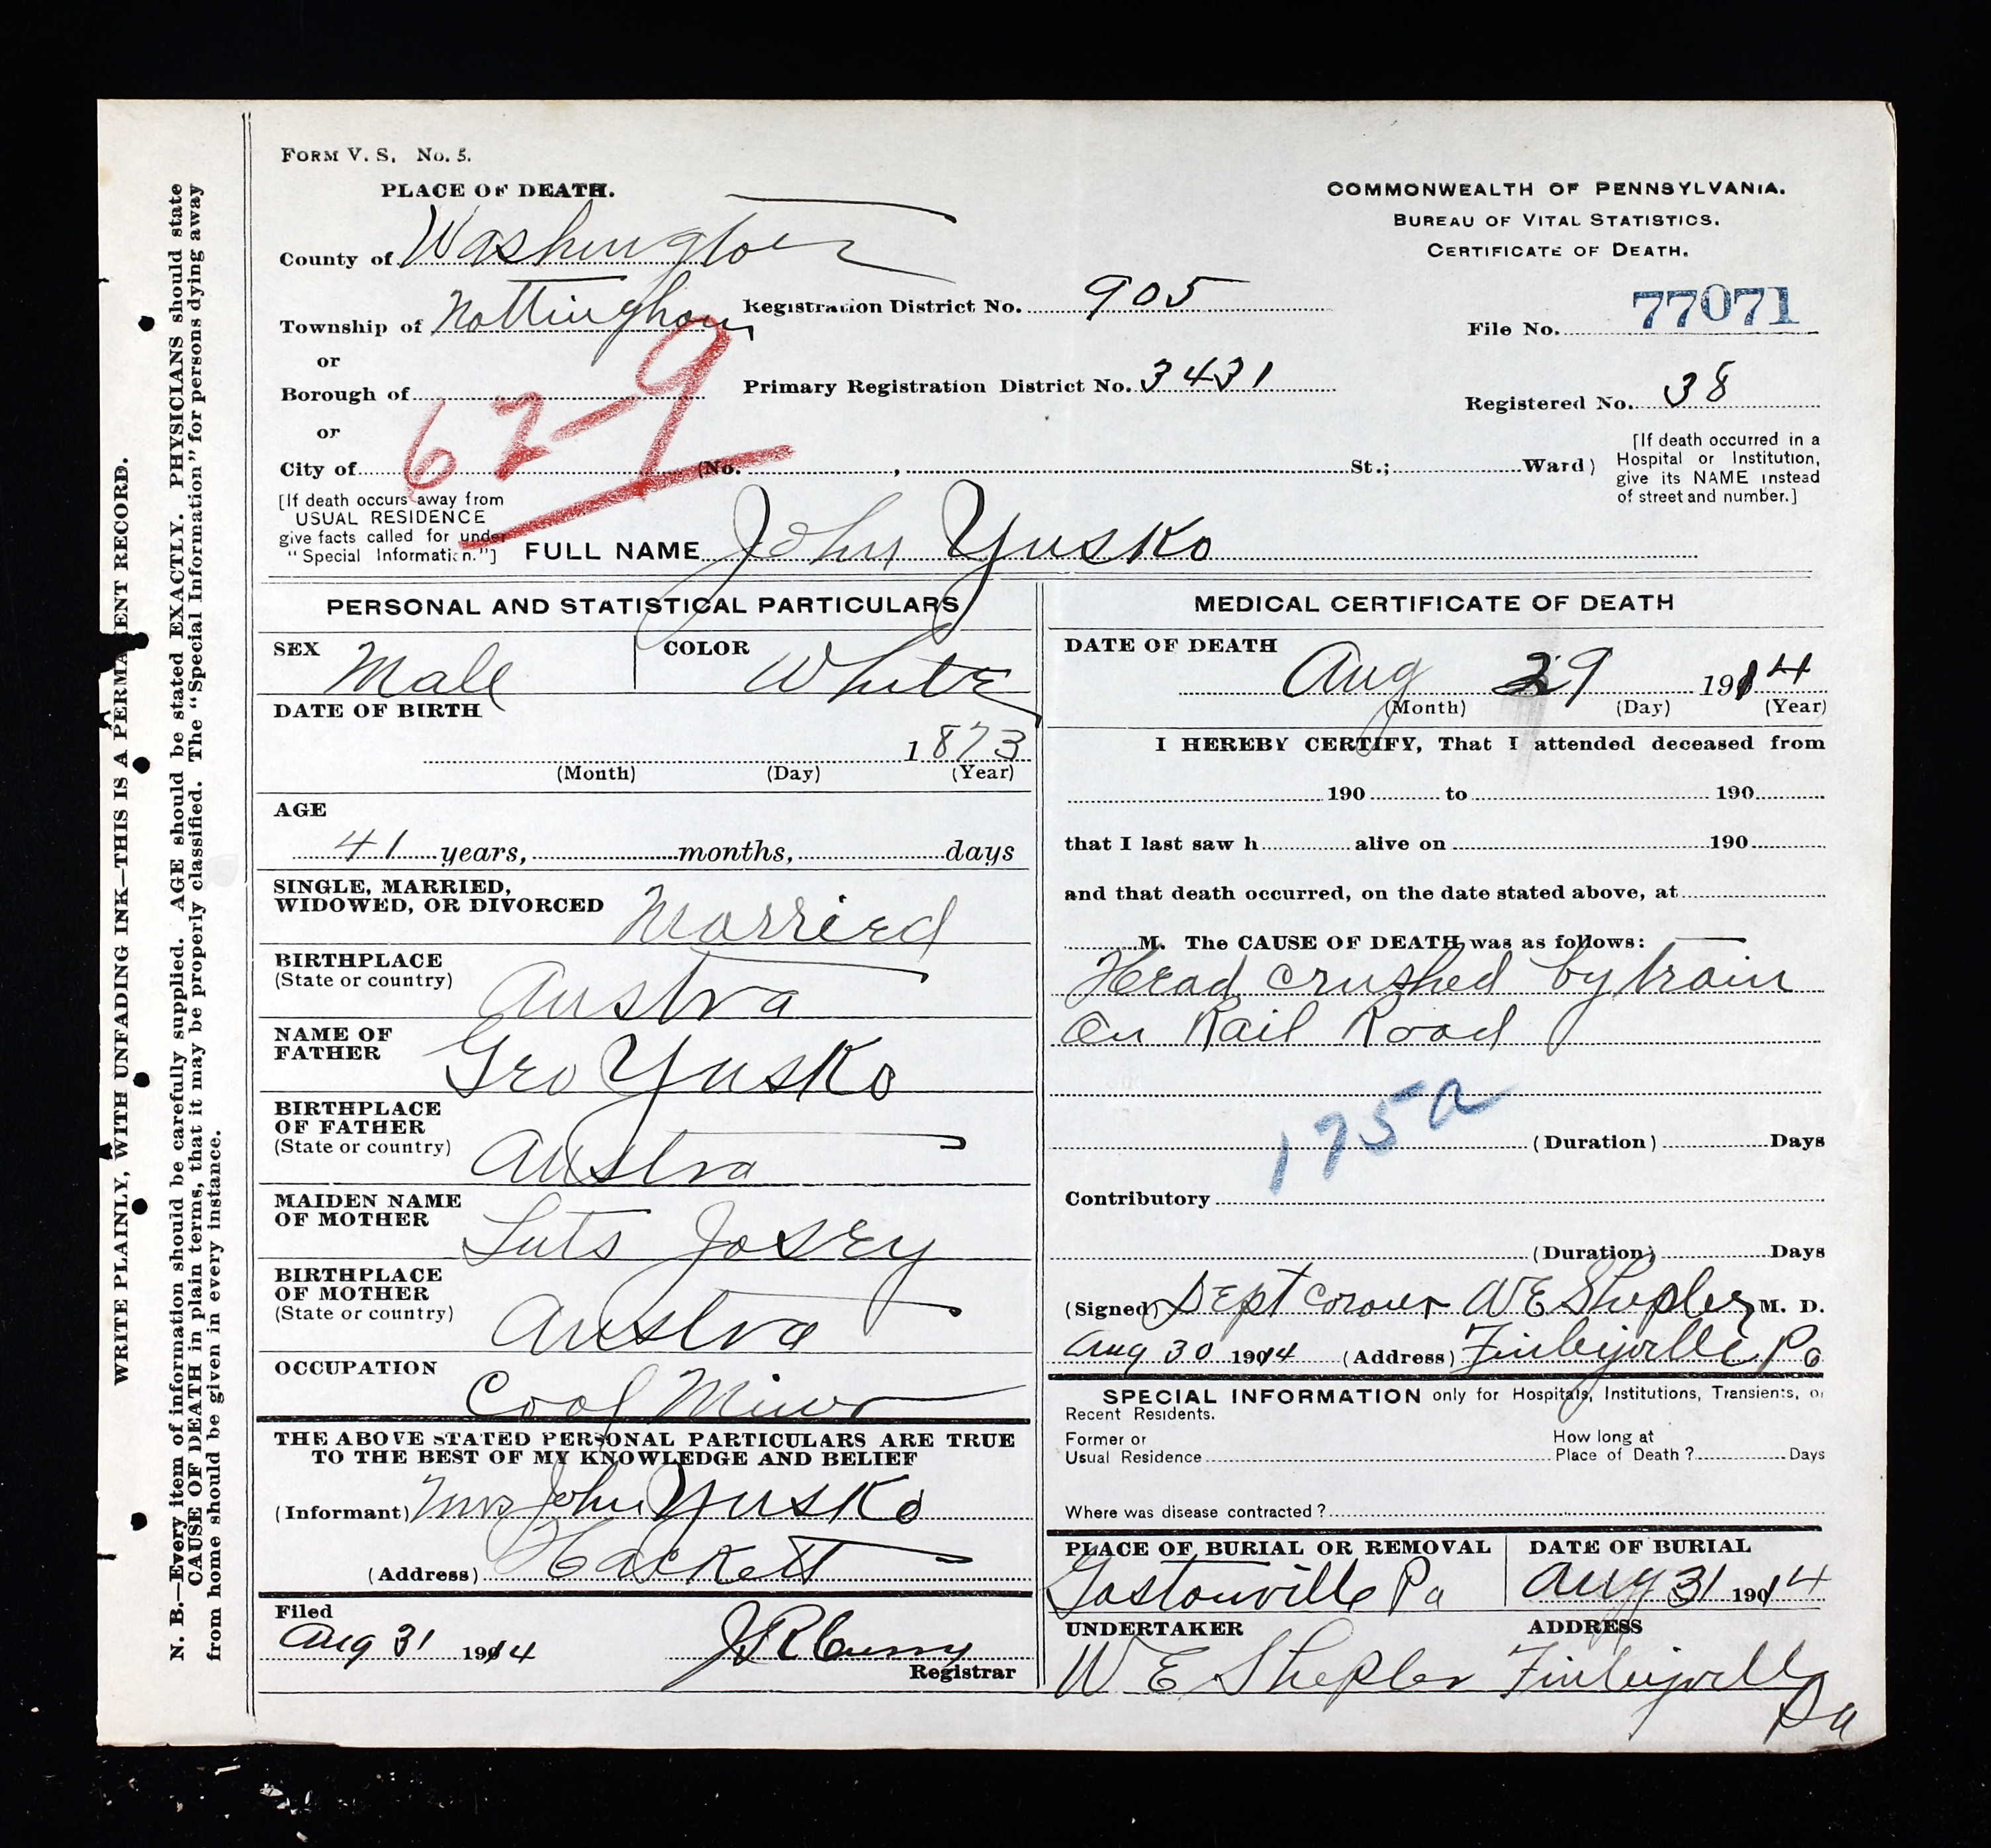 WRITE PLAINLY, WITH UNFADING INK—THIS IS A PERMANENT RECORD.
N. B.—Every item of information should be carefully supplied. AGE should be stated EXACTLY. PHYSICIANS should state
CAUSE OF DEATH in plain terms, that it may be properly classified. The "Special Information" for persons dying away
from home should be given in every instance.
FORM V. S. No. 5.
PLACE OF DEATH.
County of Washington
Township of Nottingham
or
Borough of
or
City of
62-9
[If death occurs away from
USUAL RESIDENCE
give facts called for under
"Special Information."]
Registration District No. 905
Primary Registration District No. 3431
(No. , St.; Ward)
COMMONWEALTH OF PENNSYLVANIA.
BUREAU OF VITAL STATISTICS.
CERTIFICATE OF DEATH.
File No. 77071
Registered No. 38
[If death occurred in a
Hospital or Institution,
give its NAME instead
of street and number.]
FULL NAME John Yusko
PERSONAL AND STATISTICAL PARTICULARS
SEX Male COLOR White
DATE OF BIRTH
1873
(Month) (Day) (Year)
AGE
41 years, months, days
SINGLE, MARRIED,
WIDOWED, OR DIVORCED Married
BIRTHPLACE
(State or country) Austra
NAME OF
FATHER Geo Yusko
BIRTHPLACE
OF FATHER
(State or country) Austra
MAIDEN NAME
OF MOTHER Josey
BIRTHPLACE
OF MOTHER
(State or country) Austra
OCCUPATION
Coal Miner
THE ABOVE STATED PERSONAL PARTICULARS ARE TRUE
TO THE BEST OF MY KNOWLEDGE AND BELIEF
(Informant) Mrs John Yusko
(Address) Hackett
Filed
Aug 31 1914 J R Curry
Registrar
MEDICAL CERTIFICATE OF DEATH
DATE OF DEATH
Aug 29 1914
(Month) (Day) (Year)
I HEREBY CERTIFY, That I attended deceased from
190 to 190
that I last saw h alive on 190
and that death occurred, on the date stated above, at
M. The CAUSE OF DEATH was as follows:
Head crushed by train
on Rail Road
175a
(Duration) Days
Contributory
(Duration) Days
(Signed) Dept Coroner W E Shepler M. D.
Aug 30 1914 (Address) Finleyville Pa
SPECIAL INFORMATION only for Hospitals, Institutions, Transients, or
Recent Residents.
Former or
Usual Residence
How long at
Place of Death? Days
Where was disease contracted?
PLACE OF BURIAL OR REMOVAL DATE OF BURIAL
Gastonville Pa Aug 31 1914
UNDERTAKER ADDRESS
W E Shepler Finleyville
Pa